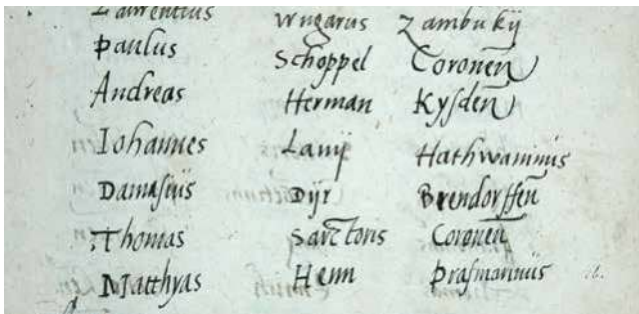 Laurentius Wngarus Zambukij
Paulus Schoppel Coronen̄
Andreas Herman Kysden̄
Iohannes Lanij Hathwaninus
Damasius Dijr Brendorffen̄
Thomas Sartoris Coronen̄
Matthyas Henn Prasmannus